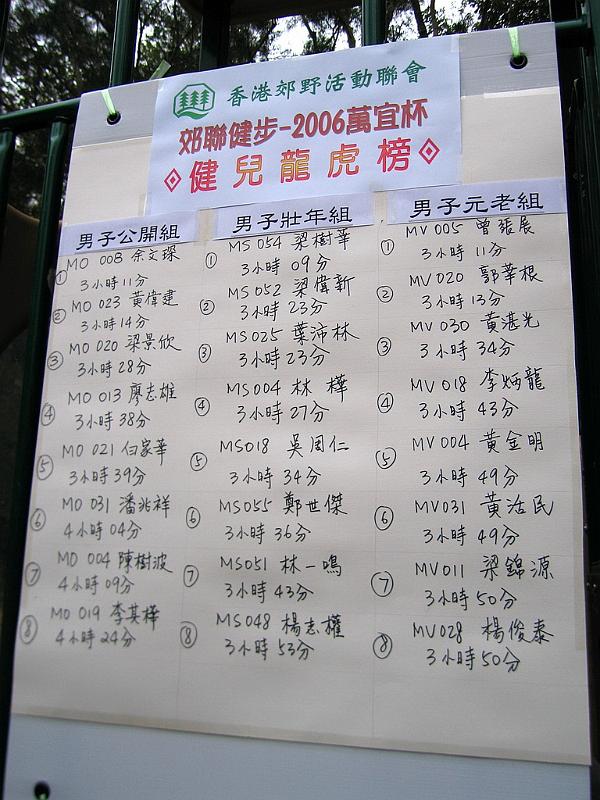 香港郊野活動聯會
郊聯健步-2006萬宜杯
健兒龍虎榜
男子公開組
① MO 008 余文琛
3小時11分
② MO 023 黃偉建
3小時14分
③ MO 020 梁景欣
3小時28分
④ MO 013 廖志雄
3小時38分
⑤ MO 021 何家華
3小時39分
⑥ MO 031 潘兆祥
4小時04分
⑦ MO 004 陳樹波
4小時09分
⑧ MO 019 李其樺
4小時24分
男子壯年組
① MS 054 梁樹華
3小時09分
② MS 052 梁偉新
3小時23分
③ MS025 葉沛林
3小時23分
④ MS004 林樺
3小時27分
⑤ MS018 吳國仁
3小時34分
⑥ MS055 鄭世傑
3小時36分
⑦ MS051 林一鳴
3小時43分
⑧ MS048 楊志權
3小時53分
男子元老組
① MV 005 曾張展
3小時11分
② MV020 郭華根
3小時13分
③ MV 030 黃湛光
3小時34分
④ MV 018 李炳龍
3小時43分
⑤ MV 004 黃金明
3小時49分
⑥ MV031 黃活民
3小時49分
⑦ MV011 梁錦源
3小時50分
⑧ MV028 楊俊泰
3小時50分